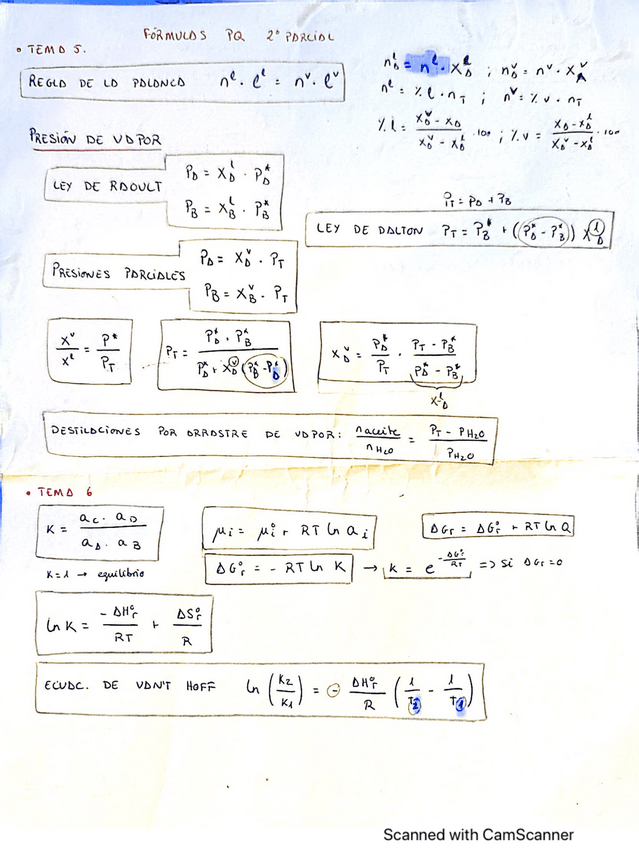 FÓRMULAS PQ 2º PARCIAL
• TEMA 5.
REGLA DE LA PALANCA n^l · l^l = n^v · l^v
n_A^l = n^l · X_A^l ; n_A^v = n^v · X_A^v
n^l = % l · n_T ; n^v = % v · n_T
% l = (X_A^v - X_A)/(X_A^v - X_A^l) · 100 ; % v = (X_A - X_A^l)/(X_A^v - X_A^l) · 100
PRESIÓN DE VAPOR
LEY DE RAOULT
P_A = X_A^l · P_A^*
P_B = X_B^l · P_B^*
P_T = P_A + P_B
LEY DE DALTON P_T = P_B^* + ((P_A^* - P_B^*)) X_A^l
PRESIONES PARCIALES
P_A = X_A^v · P_T
P_B = X_B^v · P_T
X^v/X^l = P^*/P_T
P_T = (P_A^* · P_B^*)/(P_A^* + X_A^v (P_B^* - P_A^*))
X_A^v = P_A^*/P_T · (P_T - P_B^*)/(P_A^* - P_B^*)
X_A^l
DESTILACIONES POR ARRASTRE DE VAPOR: n aceite/n H2O = (P_T - P_H2O)/P_H2O
• TEMA 6
K = (a_C · a_D)/(a_A · a_B)
μi = μi° + RT ln a_i
ΔGr = ΔGr° + RT ln Q
K=1 → equilibrio
ΔGr° = - RT ln K → K = e^(-ΔGr°/RT) => si ΔGr=0
ln K = -ΔHr°/RT + ΔSr°/R
ECUAC. DE VAN'T HOFF ln (K2/K1) = - ΔHr°/R (1/T2 - 1/T1)
Scanned with CamScanner